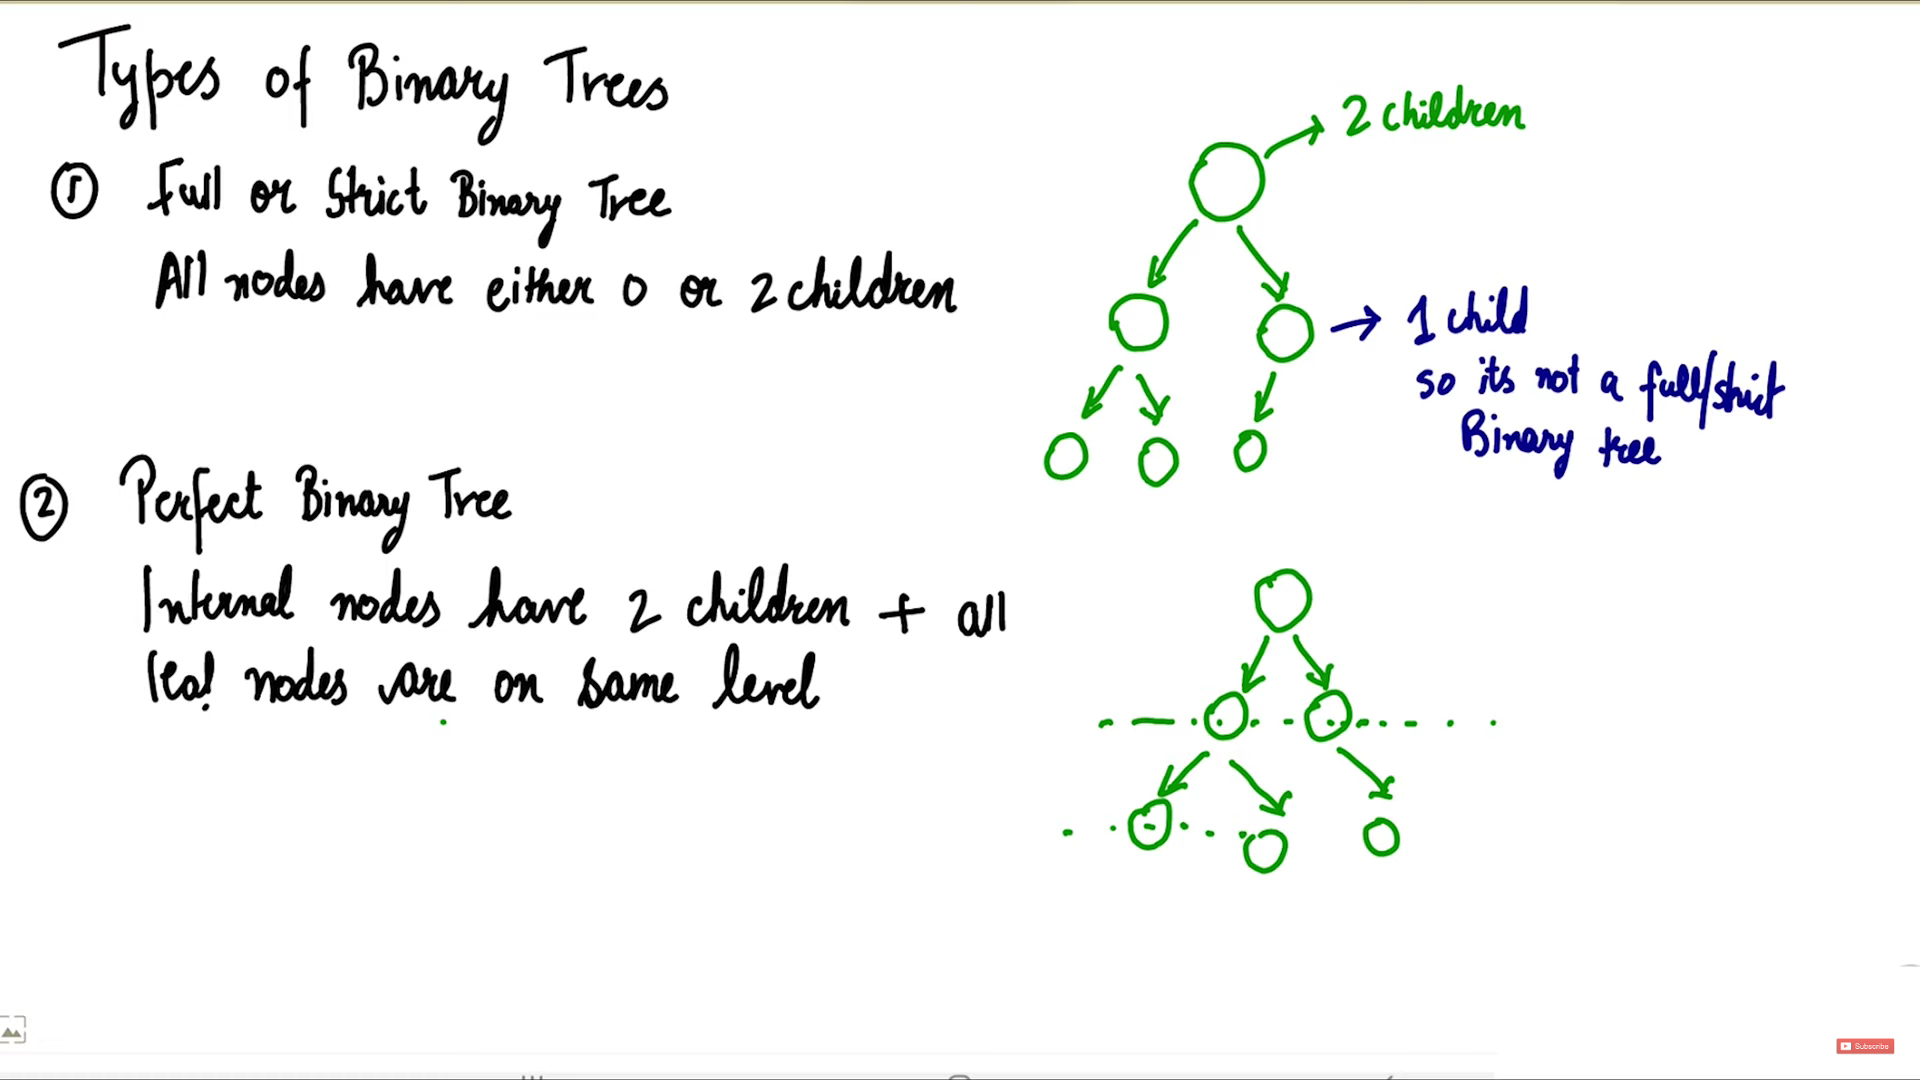 Types of Binary Trees
① Full or Strict Binary Tree
All nodes have either 0 or 2 children
2 children
1 child
so its not a full/strict
Binary tree
② Perfect Binary Tree
Internal nodes have 2 children + all
leaf nodes are on same level
Subscribe